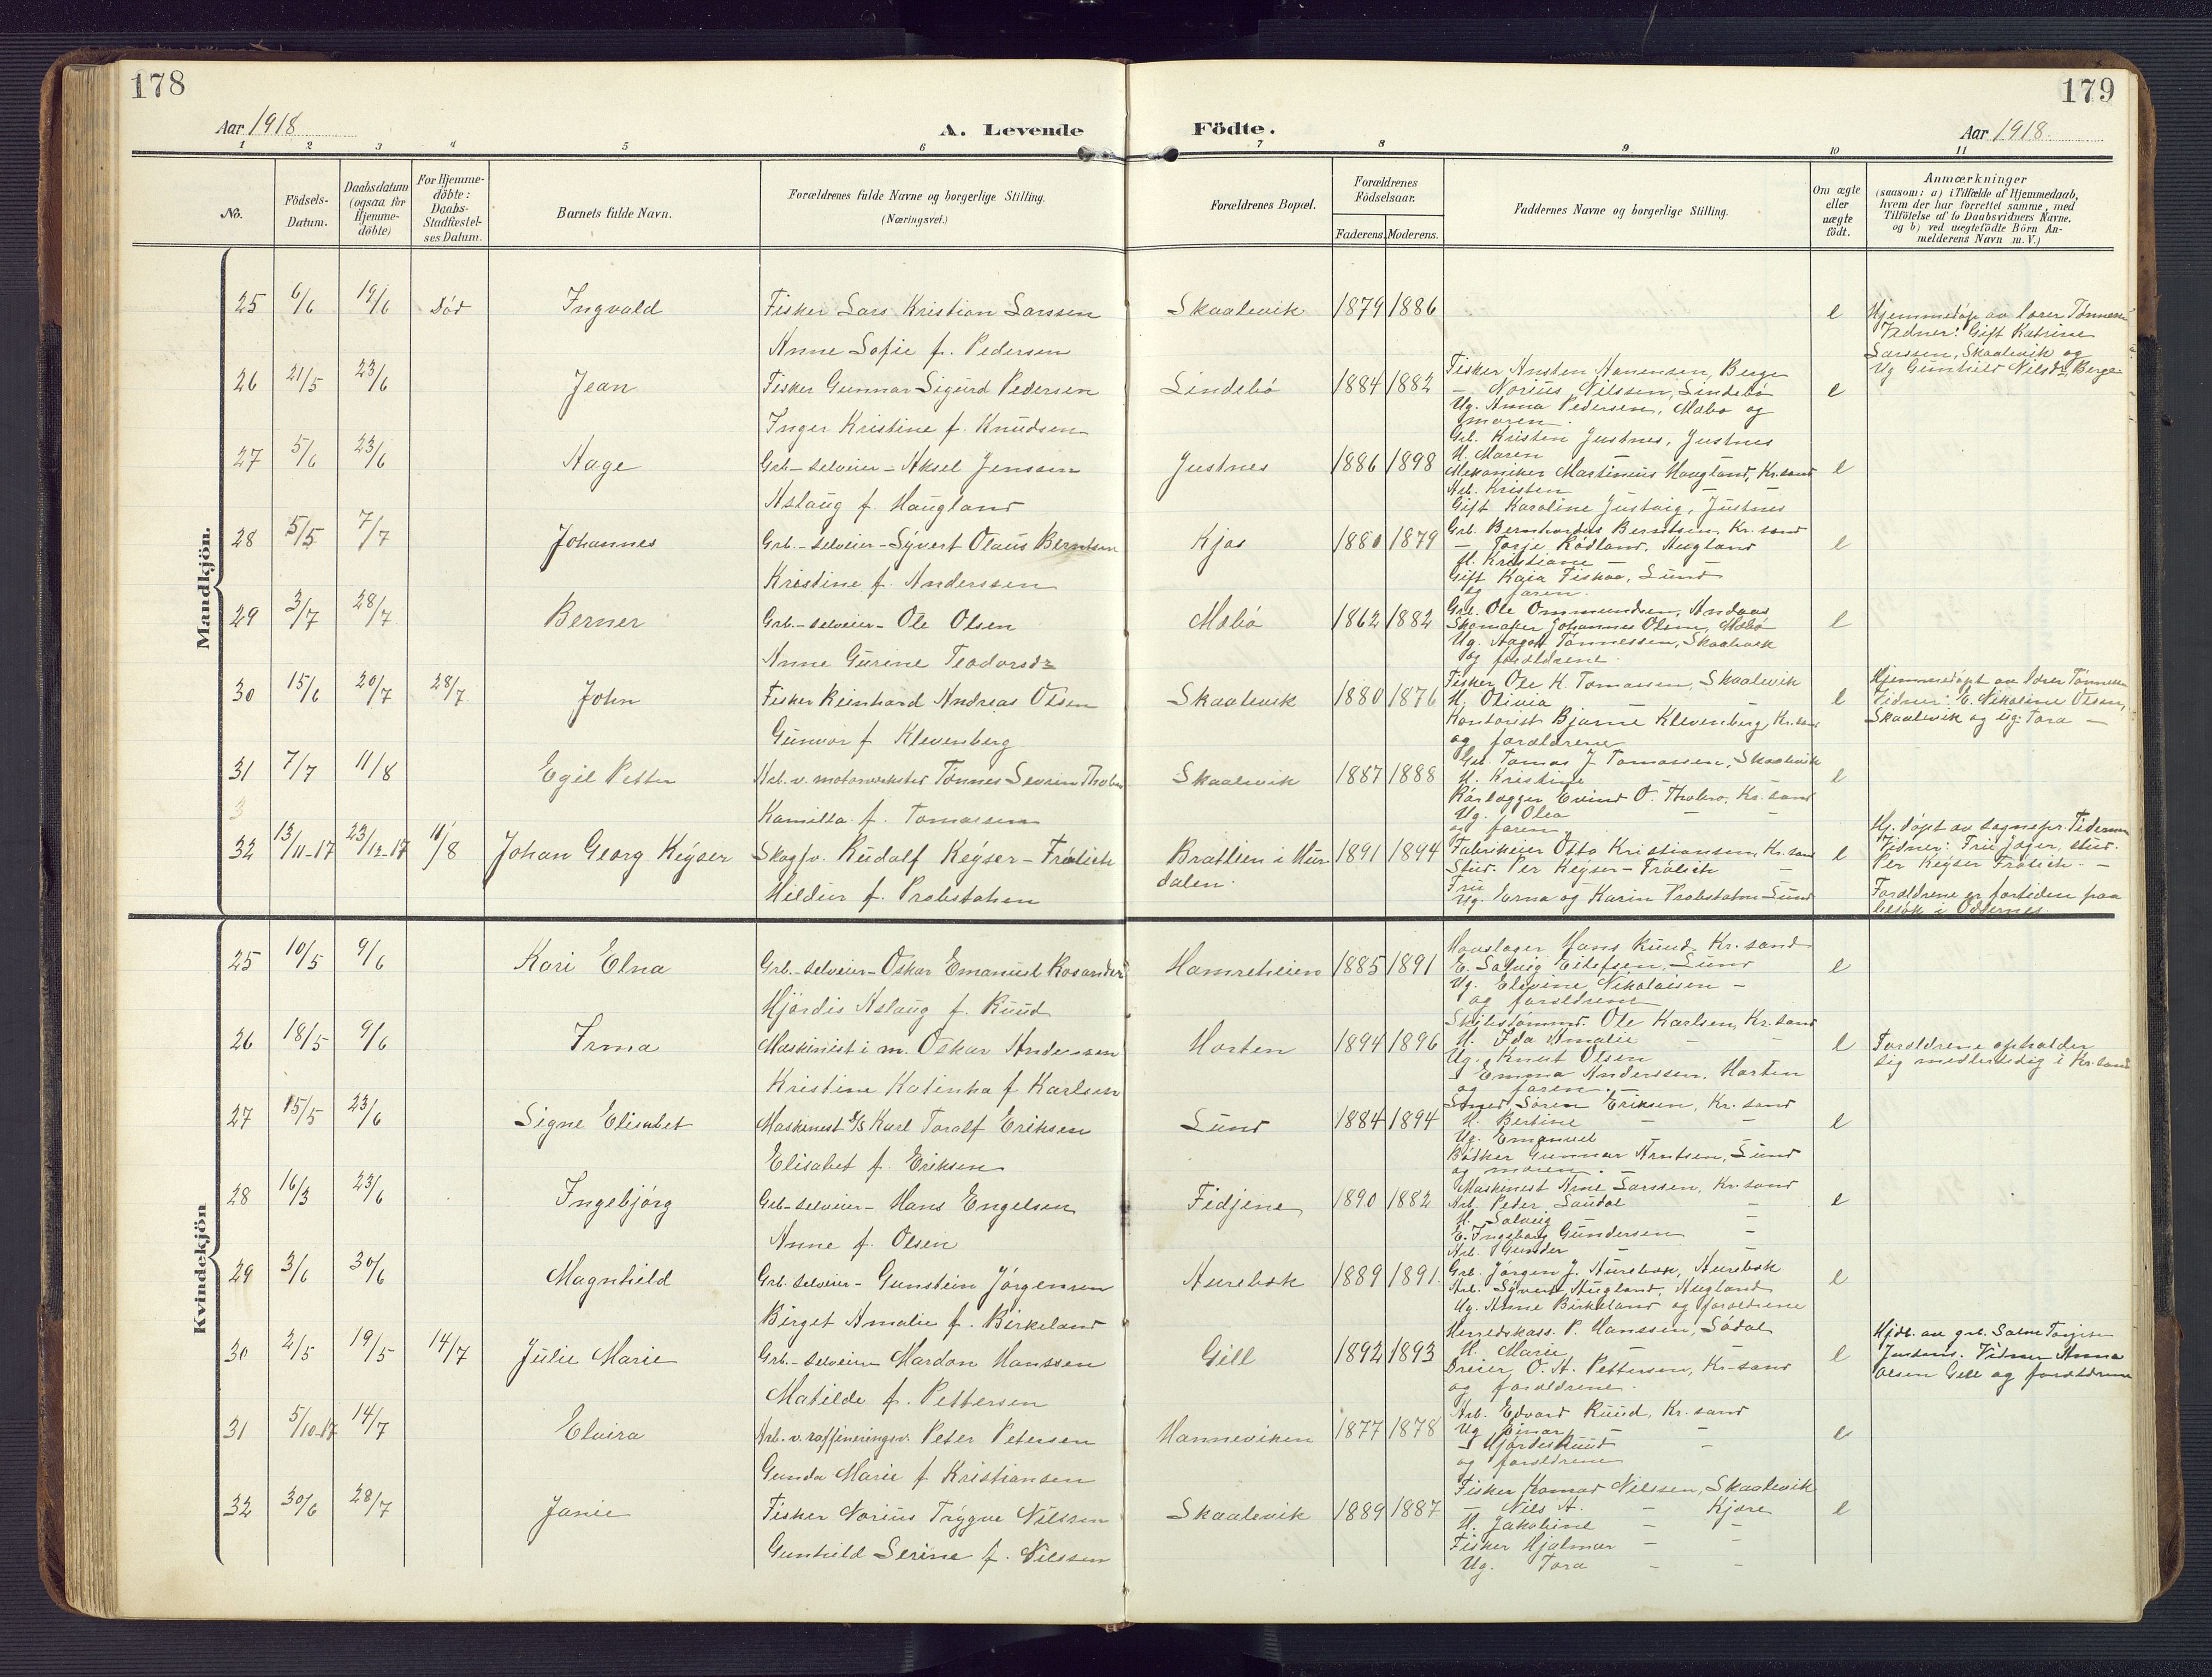 178
179
Aar 1918
A. Levende
Födte.
Aar 1918.
1 2 3 4 5 6 7 8 9 10 11
No.
Födsels-Datum.
Daabsdatum (ogsaa for Hjemme-döbte)
For Hjemme-döbte: Daabs-Stadfæstel-ses Datum.
Barnets fulde Navn.
Forældrenes fulde Navne og borgerlige Stilling.
(Næringsvei.)
Forældrenes Bopæl.
Forældrenes Födselsaar.
Faderens. Moderens.
Faddernes Navne og borgerlige Stilling.
Om ægte eller uægte födt.
Anmærkninger
(saasom: a) i Tilfælde af Hjemmedaab,
hvem der har forrettet samme, med
Tilföielse af to Daabsvidners Navne.
og b) ved uægtefödte Börn An-
melderens Navn m. V.)
Mandkjön.
25 6/6 19/6 Død Ingvald Fisker Lars Kristian Larssen Skaalevik 1879 1886 e
Anne Sofie f. Pedersen
Hjemmedøpt av lærer Tønnessen
Vidner: Gift Katrine
Larssen, Skaalevik og
Ug Gunhild Nilsdr, Berge
26 21/5 23/6 Jean Fisker Gunnar Sigurd Pedersen Lindebö 1884 1882 e
Inger Kristine f. Knudsen
Fisker Ansten Hanensen, Berge
— Norius Nilssen, Lindebö
Ug. Anna Pedersen, Mæbø og
moren.
27 5/6 23/6 Aage Grb-selveier-Aksel Jenssen Justnes 1886 1898 e
Aslaug f. Haugland
Grb. Kristen Justnes, Justnes
H. Maren —
Mekaniker Martinius Haugland, Kr.sand
Arb. Kristen — —
Gift Karoline Justvig, Justnes
28 5/5 7/7 Johannes Grb-selveier-Syvert Olaus Berntsen Kjos 1880 1879 e
Kristine f. Anderssen
Grb. Bernhardus Berntsen, Kr.sand
— Torje Rödland, Augland
H. Kristiane —
Gift Kaia Fiskaa, Lund
og faren.
29 3/7 28/7 Berner Grb-selveier-Ole Olsen Mæbö 1862 1882 e
Anne Gurine Teodorsdr
Grb. Ole Ommundsen, Andaas
Skomaker Johannes Olsen, Mæbö
Ug. Aagot Tönnessen, Skaalevik
og forældrene.
30 15/6 20/7 28/7 John Fisker Reinhard Andreas Olsen Skaalevik 1880 1876 e
Gunvor f Klevenberg
Fisker Ole K. Tomassen, Skaalevik
H. Olivia —
Kontorist Bjarne Klevenberg, Kr.sand
og forældrene
Hjemmedöpt av lærer Tønnessen
Vidner: E. Nikoline Olsen,
Skaalevik og ug. Tora —
31 7/7 11/8 Egil Petter Arb. v. motorverksted Tönnes Severin Skaalevik 1887 1888 e
Kamilla f. Tomassen
Grb. Tomas J. Tomassen, Skaalevik
H. Kristine —
Rörlægger Evind O. Kr.sand
Ug. Olea — —
og faren.
32 13/11-17 23/12-17 11/8 Johan Georg Keyser Skogfv. Rudolf Keyser-Frölich Brattlien i Hur- 1891 1894 e
Hildur f. Probstahen dalen.
Fabrikeier Otto Kristiansen, Kr.sand
Stud. Per Keyser-Frölich —
Fru
Ug. Erna og Karin Lund
Hj.döpt av sognepr. Tidemann
Vidner: Fru Jæger, stud.
Per Keyser Frölich. —
Forældrene er fortiden paa
besøk i Oddernes.
Kvindekjön
25 10/5 9/6 Kari Elna Grb-selveier-Oskar Emanuel Rosander Hamreheien 1885 1891 e
Hjördis Aslaug f. Ruud
Hans Ruud, Kr.sand
E. Solveig Eilefsen, Lund
Ug. Elevine Nikolaisen —
og forældrene
26 18/5 9/6 Irma Maskinist i m. Oskar Anderssen Horten 1894 1896 e
Kristine Katinka f Karlsen
Skibstömmr. Ole Karlsen, Kr.sand
H. Ida Amalie — —
Ug. Knut Olsen
S Emma Anderssen, Horten
og faren.
Forældrene opholder
sig midlertidig i Kr.sand
27 15/5 23/6 Signe Elisabet Maskinist Karl Toralf Eriksen Lund 1884 1894 e
Elisabet f. Eriksen
Smed Sören Eriksen, Kr.sand
H. Bertine — —
Ug. Emanuel
Bödker Gunnar Arntsen, Lund
og moren. —
28 16/3 23/6 Ingebjörg Grb-selveier-Hans Engelsen Fidjene 1890 1882 e
Anne f. Olsen
Maskinist Arne Larssen, Kr.sand
Arb. Peder Laudal —
H. Solveig —
E. Ingeborg Gundersen —
Arb. Gunder —
29 3/6 30/6 Magnhild Grb-selveier-Gunstein Jörgensen Aurebæk 1889 1891 e
Birget Amalie f. Birkeland
Grb. Jörgen J. Aurebæk, Aurebæk
Arb. Syvert Augland, Augland
Ug. Anne Birkeland og forældrene
30 2/5 19/5 14/7 Julie Marie Grb-selveier Mardon Hanssen Gill 1892 1893 e
Matilde f. Pettersen
Herredskass. P. Hanssen, Södal
H. Marie
Dreier O. A. Pettersen, Kr-sand
og forældrene.
Hjdb. av grb. Salve
Vidner Anna
Olsen Gill og forældrene
31 5/10-17 14/7 Elvira Arb. v. raffineringsv. Peter Petersen Hanneviken 1877 1878 e
Gunda Marie f Kristiansen
Arb. Edvard Ruud, Kr.sand
Ug Einar — —
S Hjördis Ruud —
og forældrene
32 30/6 28/7 Janie Fisker Norius Trygve Nilssen Skaalevik 1889 1887 e
Gunhild Serine f. Nilssen
Fisker Nilssen, Skaalevik
— Nils A. — Kjære
H. Jakobine — —
Fisker Hjalmar — —
Ug. Tora — —